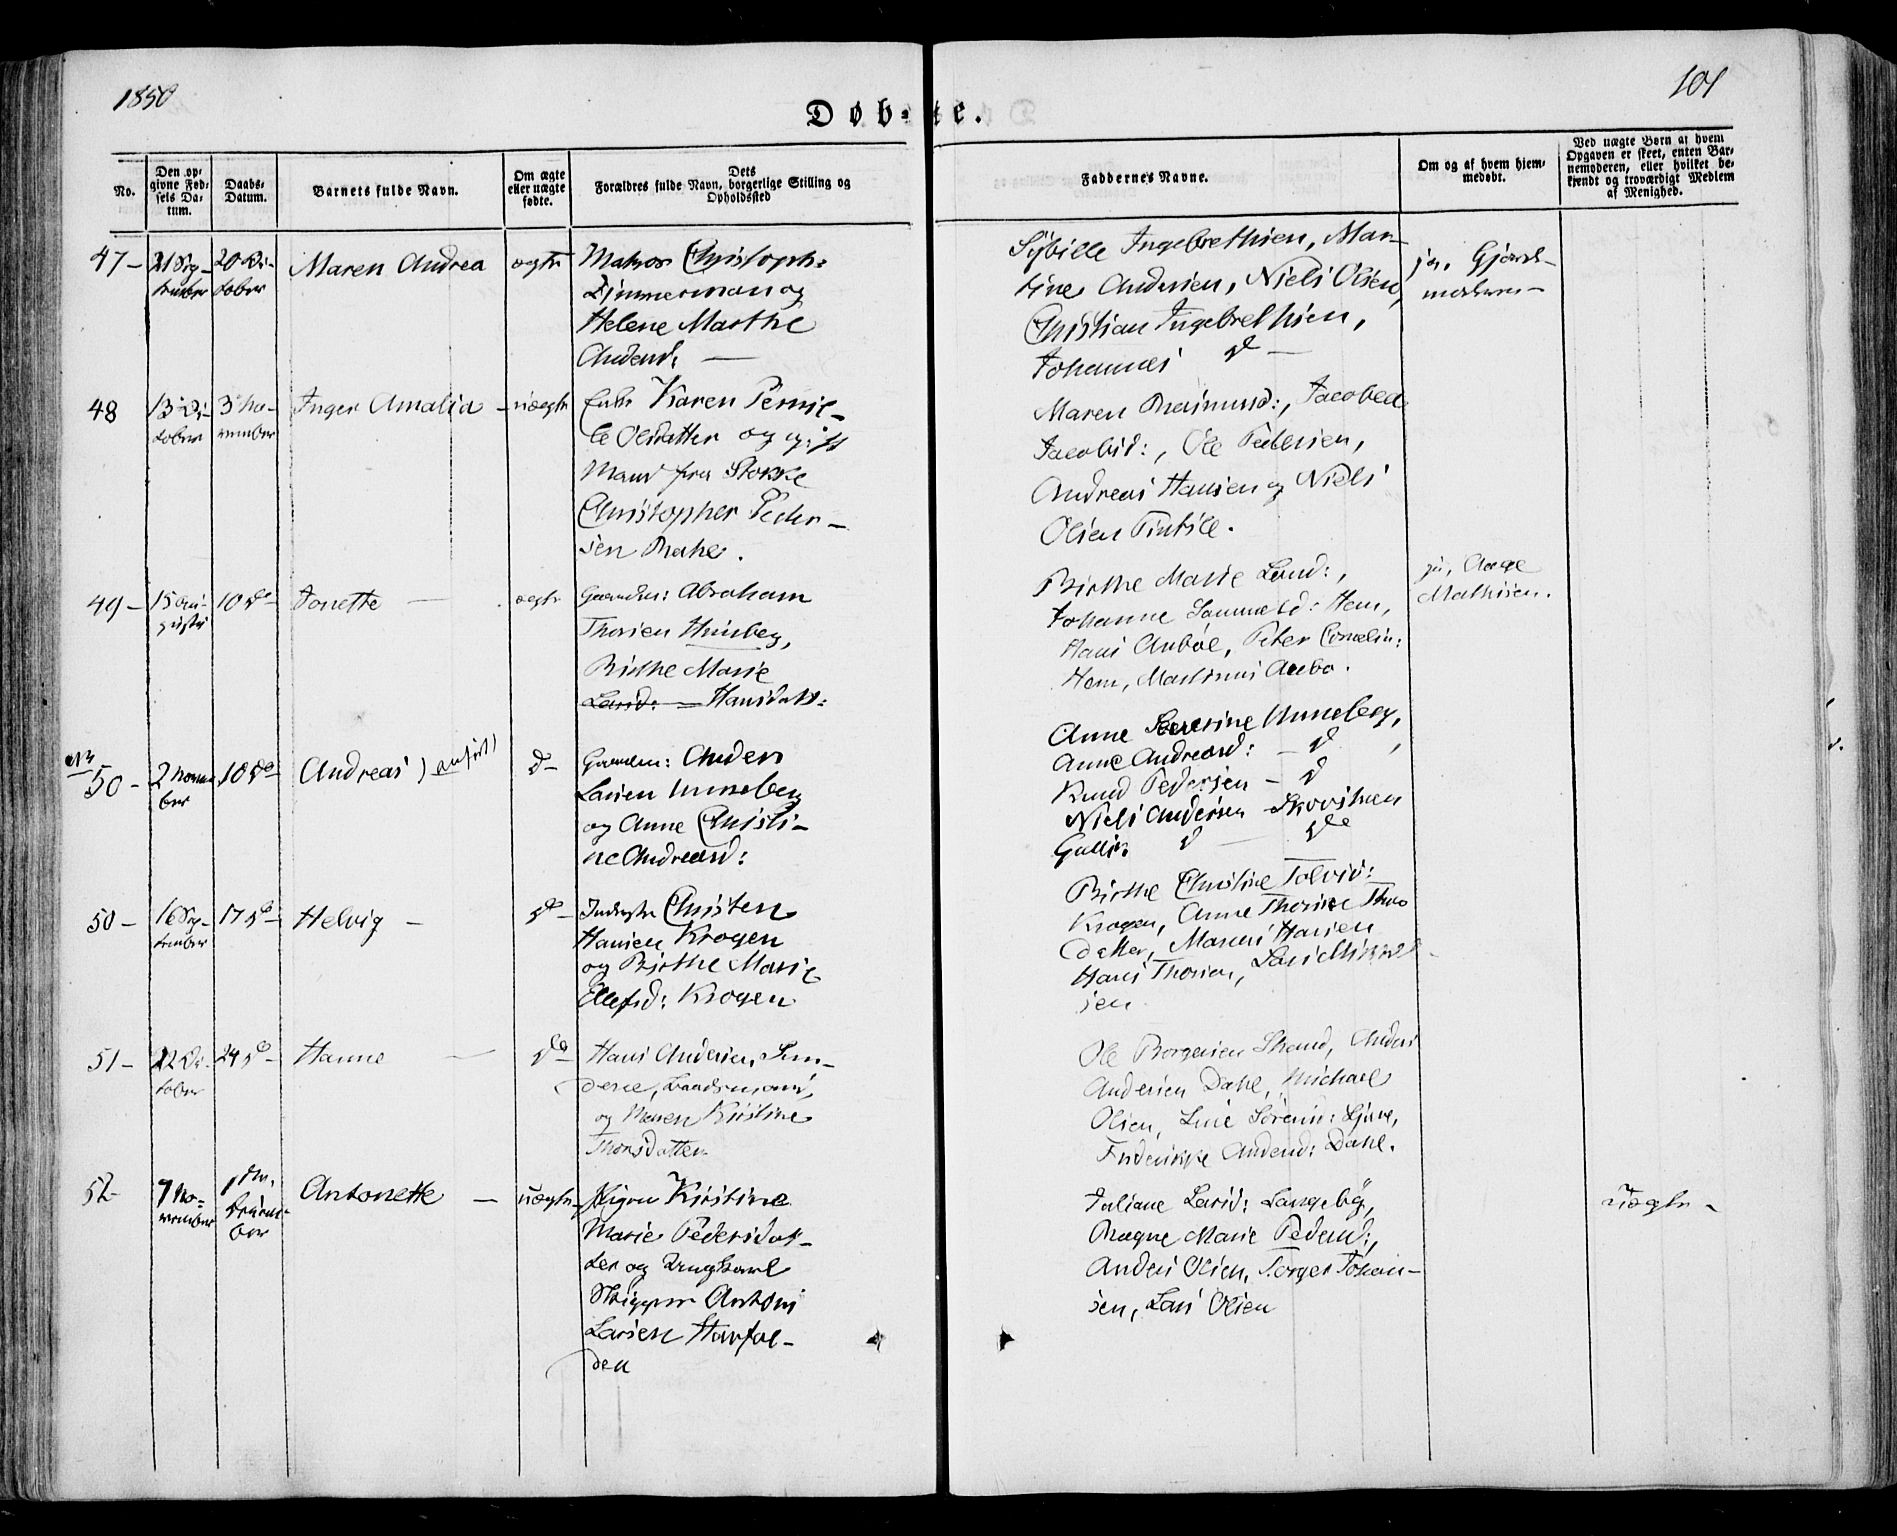 1850
101
Døb-te.
No.
Den op-
givne Fød-
sels Da-
tum.
Daabs-
Datum.
Barnets fulde Navn.
Om ægte
eller uægte
fødte.
Dets
Forældres fulde Navn, borgerlige Stilling og
Opholdssted
Faddernes Navne.
Om og af hvem hjem-
medøbt.
Ved uægte Børn at hvem
Opgaven er skeet, enten Bar-
nemoderen, eller hvilket be-
kjendt og troværdigt Medlem
af Menighed.
47-
21 Sep-
tember
20 Oc-
tober
Maren Andrea
ægte
Matros Christoph:
Zimmerman og
Helene Marthe
Andersd:
Sybille Ingebrethsen, Mar-
tine Andersen, Niels Olsen,
Christian Ingebrethsen,
Johannes do
ja, Gjord-
moderen
48
13 Oc-
tober
3 No-
vember
Inger Amalia
uægte
Enke Karen Pernil-
le Olsdatter og gift
Mand fra Stokke
Christopher Peder-
sen
Maren Rasmusd:, Jacobea
Jacobsd:, Ole Pedersen,
Andreas Hansen og Niels
Olsen
49-
15 Au-
gust
10 do
Jonette
ægte
Gaardm: Abraham
Thorsen Hunsberg,
Birthe Marie
Larsd: Hansdatt:
Birthe Marie Larsd:,
Johanne Sammeld: Hem,
Hans Auboe, Peter Cornelius:
Hem, Martinus Aubo.
ja, Aage
Mathisen.
NB
50-
2 Novem-
ber
10 do
Andreas) anført)
do
Gaardm: Anders
Larsen Unneberg
og Anne Christi-
ne Andreasd:
Anne Severine Unneberg,
Anne Andreasd: do
Knud Pedersen - do
Niels Andersen
do
50-
16 Sep-
tember
17 do
Helvig
do
Inderste Christen
Hansen Krogen
og Birthe Marie
Ellefsd: Krogen
Birthe Christine
Krogen, Anne Thorine Thors
datter, Marcus Hansen
Hans Thorsen, Lars Mikkel
sen
51-
22 Oc-
tober
24 do
Hanne
do
Hans Andersen, Sun-
dene, Baadsmand,
og Maren Kirstine
Thorsdatter
Ole Borgersen Strand, Anders
Andersen Dahl, Michael
Olsen, Line Sørensd:
Frederikke Andersd: Dahl.
52-
7 No-
vember
1ste
Decem-
ber
Antonette
uægte
Pigen Kirstine
Marie Pedersdat-
ter og Ungkarl
Skipper Anton
Larsen
Juliane Larsd: Langeby,
Ragne Marie Pedersd:,
Anders Olsen, Torger Johan-
sen, Lars Olsen
uægte